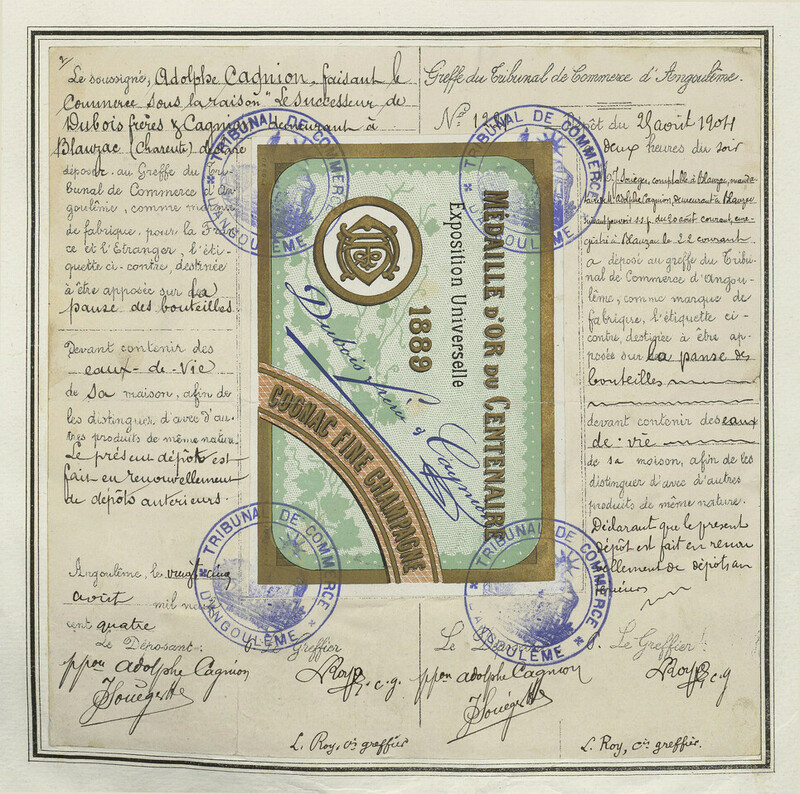 Le soussigné, Adolphe Cagnion, faisant le
Commerce sous la raison "Le successeur de
Dubois frères & Cagnion demeurant à
Blauzac (Charente) désire
déposer au Greffe du Tri-
bunal de Commerce d'An-
goulême, comme marque
de fabrique, pour la Fran-
ce et l'Etranger, l'éti-
quette ci-contre, destinée
à être apposée sur la
panse des bouteilles.
Devant contenir des
eaux-de-vie
de sa maison, afin de
les distinguer d'avec d'au-
tres produits de même nature.
Le présent dépôt est
fait en renouvellement
de dépôts antérieurs.
Angoulême, le vingt cinq
août mil neuf
cent quatre
Le Déposant: Greffier
ppon Adolphe Cagnion
L. Roy, cis greffier
MÉDAILLE D'OR DU CENTENAIRE
Exposition Universelle
1889
Dubois frères & Cagnion
COGNAC FINE CHAMPAGNE
TRIBUNAL DE COMMERCE
D'ANGOULÊME
TRIBUNAL DE COMMERCE
D'ANGOULÊME
TRIBUNAL DE COMMERCE
D'ANGOULÊME
TRIBUNAL DE COMMERCE
D'ANGOULÊME
Greffe du Tribunal de Commerce d'Angoulême.
Dépôt du 25 août 1904
deux heures du soir
comptable à Blauzac, manda-
Adolphe Cagnion, demeurant à Blauzac
suivant pouvoir s.s.p. du 20 août courant, enre-
gistré à Blauzac le 22 courant
a déposé au greffe du Tribu-
nal de Commerce d'Angou-
lême, comme marque de
fabrique, l'étiquette ci-
contre, destinée à être ap-
posée sur la panse des
bouteilles
devant contenir des eaux
de-vie
de sa maison, afin de les
distinguer d'avec d'autres
produits de même nature.
Déclarant que le présent
dépôt est fait en renou
vellement de dépôts an
térieurs
Le P. Le Greffier:
ppon Adolphe Cagnion
L. Roy, cis greffier.